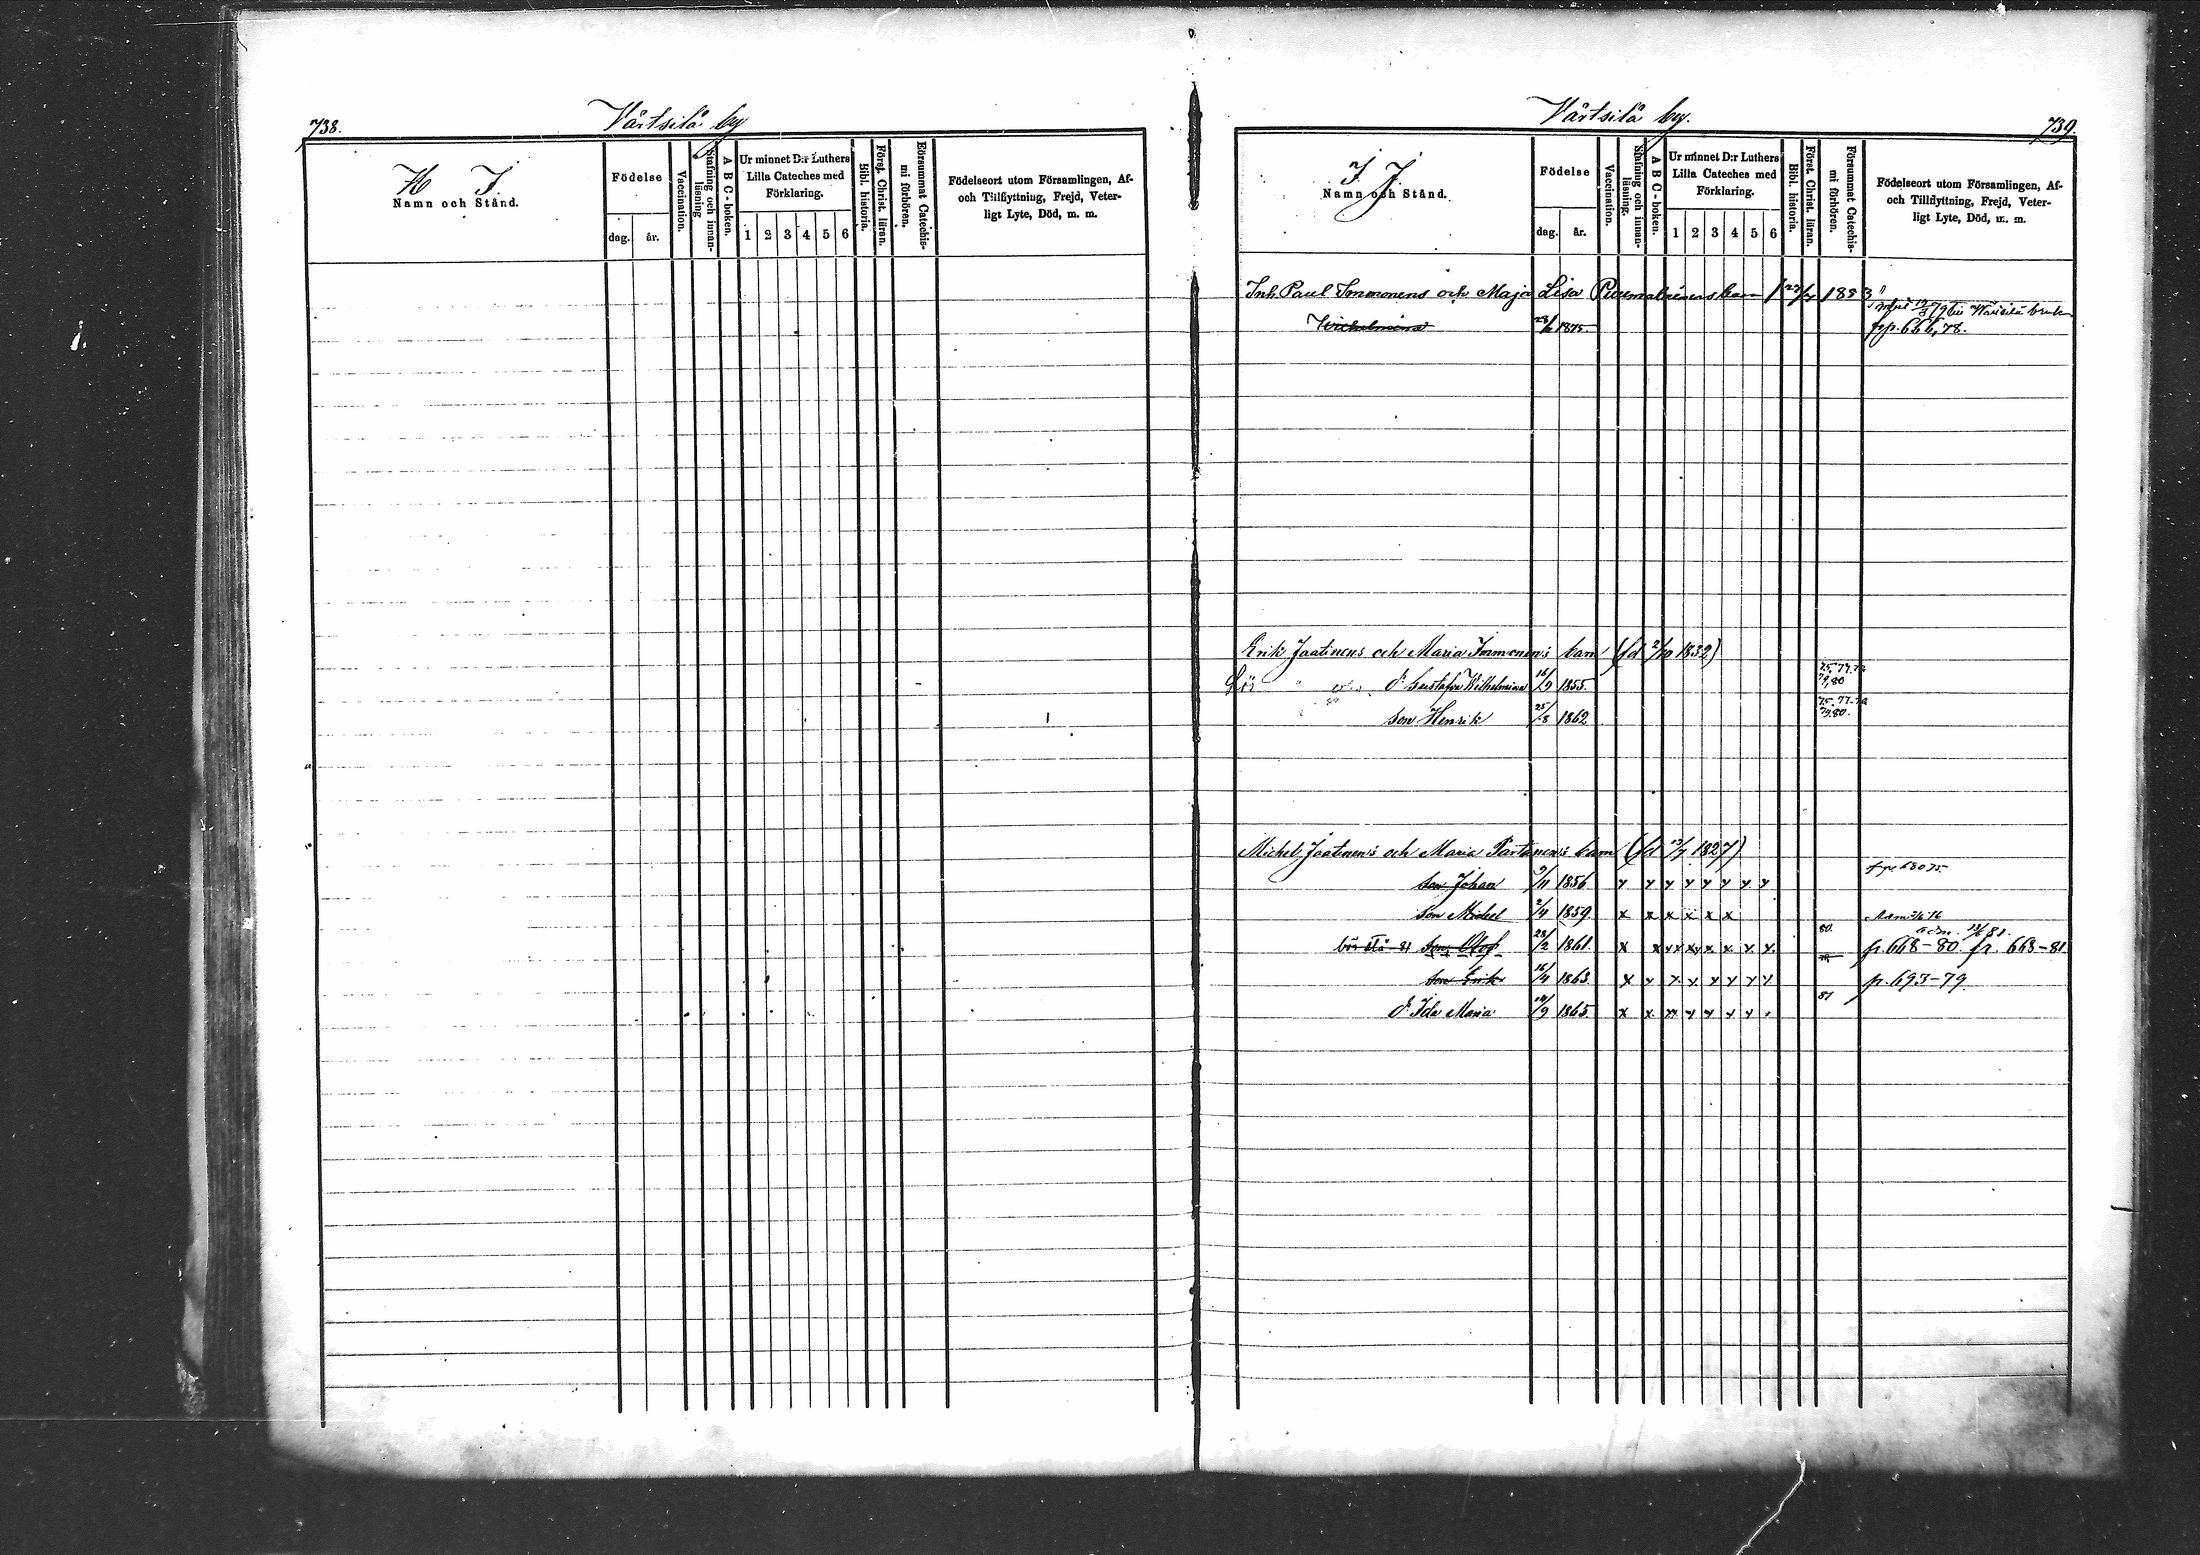 738.
Värtsilä by
H I.
Namn och Stånd.
Födelse
dag.
år.
Vaccination.
Stafning och innan-
läsning
A B C - boken.
Ur minnet D:r Luthers
Lilla Cateches med
Förklaring.
1 2 3 4 5 6
Bibl. historia.
Först. Christ. läran.
Försummat Catechis-
mi förhören.
Födelseort utom Församlingen, Af-
och Tillflyttning, Frejd, Veter-
ligt Lyte, Död, m. m.
Värtsilä by.
739.
I J
Namn och Stånd.
Födelse
dag.
år.
Vaccination.
Stafning och innan-
läsning.
A B C - boken.
Ur minnet D:r Luthers
Lilla Cateches med
Förklaring.
1 2 3 4 5 6
Bibl. historia.
Först. Christ. läran.
Försummat Catechis-
mi förhören.
Födelseort utom Församlingen, Af-
och Tillflyttning, Frejd, Veter-
ligt Lyte, Död, m. m.
Inh. Paul Immonens och Maja Lisa barn
Wärtsilä bruk
Wilhelmina 1875. p. 666, 78.
Erik Jaatinens och Maria Immonens barn (fd 2/10 1832)
75. 77. 78
79, 80
d. Gustafva Wilhelmina 16/9 1855.
75. 77. 78
79. 80.
son Henrik 25/8 1862
Michel Jaatinens och Maria Partanens barn (fd 13/7 1827)
son Johan 9/11 1856 x x x x x x x x
son Michel 2/4 1859. x x x x x x
80. adm. 81.
bör stå 81 son Olof 23/2 1861. x x x x x x x x p. 668-80. fr. 668-81.
son Erik 16/4 1863. x x x x x x x x p. 693-79.
81
d. Ida Maria 14/9 1865. x x x x x x x